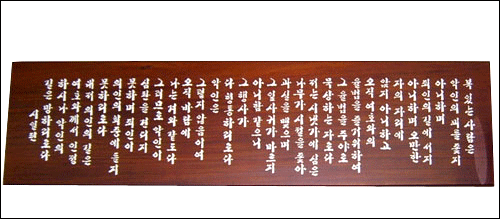 복 있는 사람은
악인의 꾀를 좇지
아니하며
죄인의 길에 서지
아니하며 오만한
자의 자리에
앉지 아니하고
오직 여호와의
율법을 즐거워하여
그 율법을 주야로
묵상하는 자로다
저는 시냇가에 심은
나무가 시절을 좇아
과실을 맺으며
그 잎사귀가 마르지
아니함 같으니
그 행사가
다 형통하리로다
악인은
그렇지 않음이여
오직 바람에
나는 겨와 같도다
그러므로 악인이
심판을 견디지
못하며 죄인이
의인의 회중에 들지
못하리로다
대저 의인의 길은
여호와께서 인정
하시나 악인의
길은 망하리로다